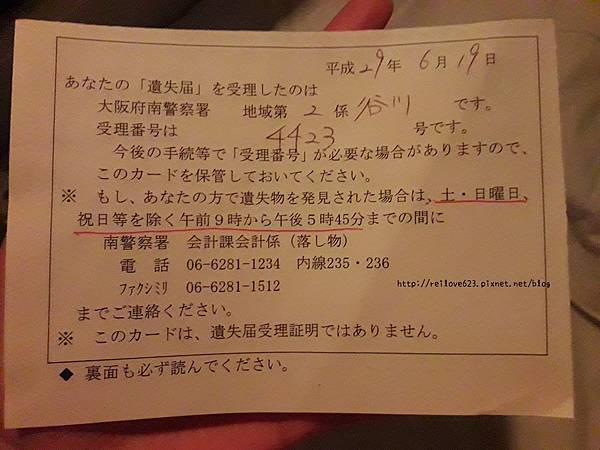 平成29年 6月19日
あなたの「遺失届」を受理したのは
大阪府南警察署 地域第 2 係 谷川 です。
受理番号は 4423 号です。
今後の手続等で「受理番号」が必要な場合がありますので、
このカードを保管しておいてください。
※ もし、あなたの方で遺失物を発見された場合は、土・日曜日、
祝日等を除く午前9時から午後5時45分までの間に
南警察署 会計課会計係（落し物）
電 話 06-6281-1234 内線235・236
ﾌｧｸｼﾐﾘ 06-6281-1512
http://reilove623.pixnet.net/blog
までご連絡ください。
※ このカードは、遺失届受理証明ではありません。
◆ 裏面も必ず読んでください。